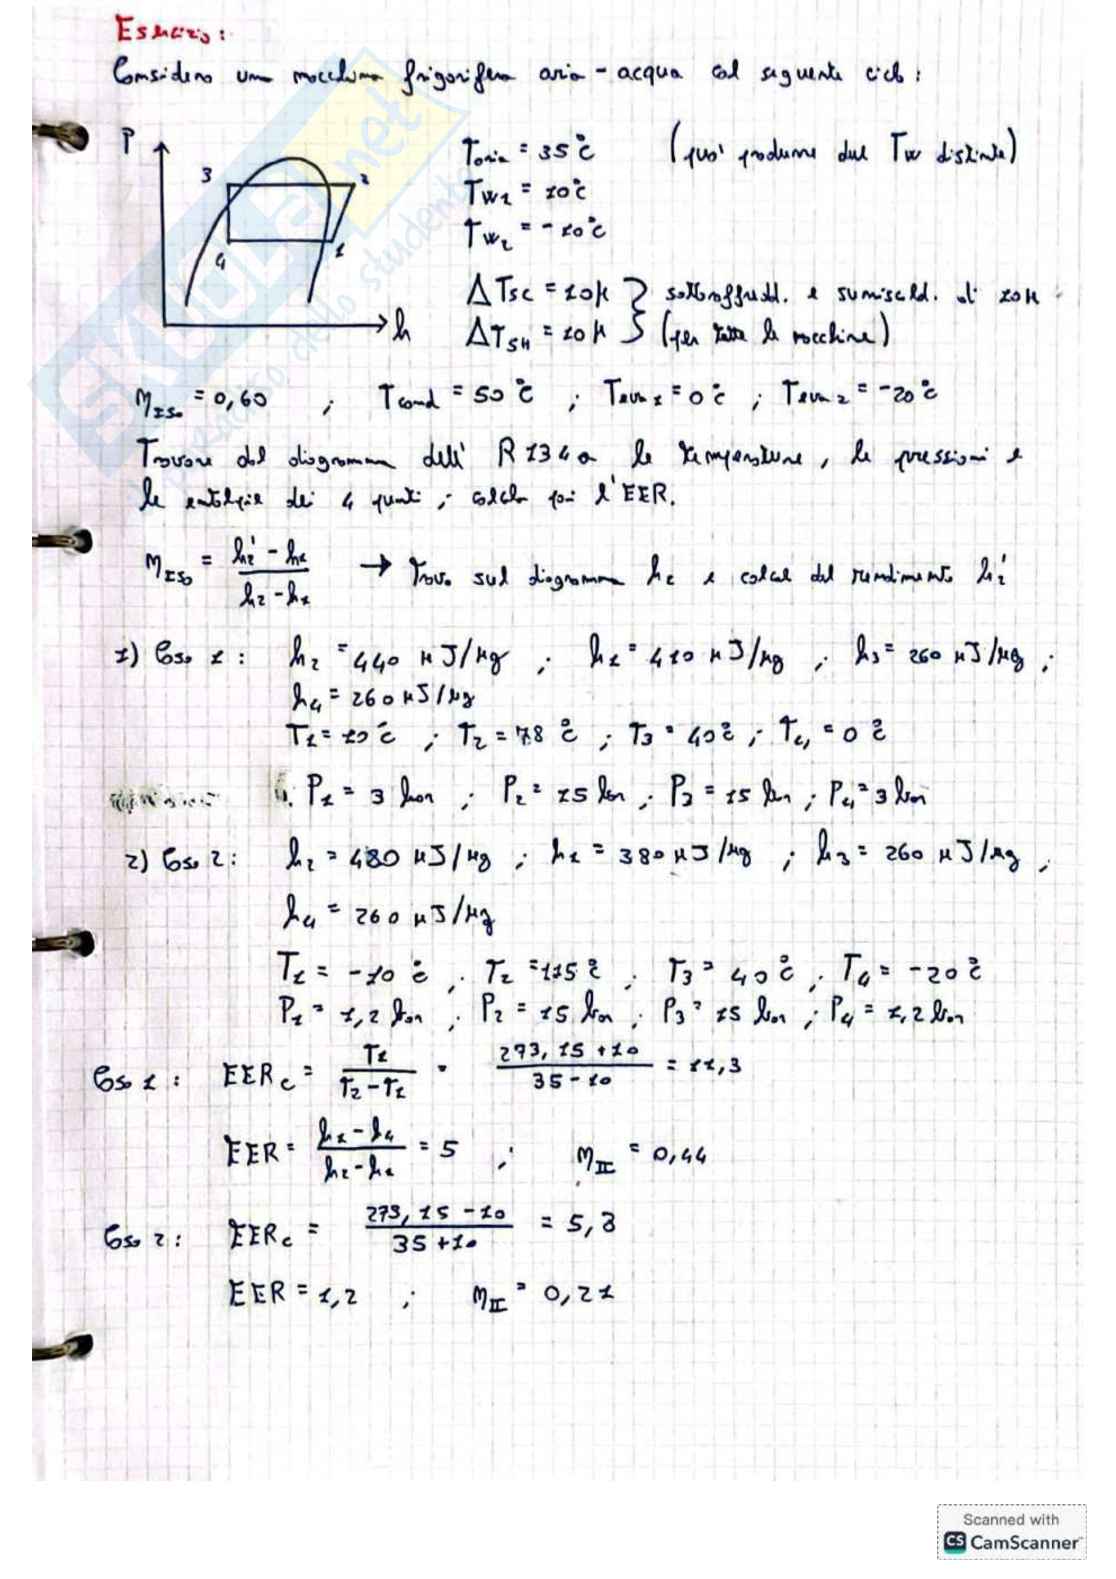 Esercizio:
Considero una macchina frigorifera aria-acqua col seguente ciclo:
P
3
2
4
1
h
Taria = 35°C (può produrre due Tw distinte)
Tw1 = 10°C
Tw2 = -10°C
ΔTSC = 10K } sottoraffredd. e surriscald. di 10K
ΔTSH = 10K } (per tutte le macchine)
ηISO = 0,60 ; Tcond = 50°C ; Teva1 = 0°C ; Teva2 = -20°C
Trovare dal diagramma dell' R134a le temperature, le pressioni e
le entalpie dei 4 punti ; calcola poi l'EER.
ηISO = (h2' - h1)/(h2 - h1) → Trovo sul diagramma h2 e calcol dal rendimento h2'
1) Caso 1: h2 = 440 KJ/Kg ; h1 = 410 KJ/Kg ; h3 = 260 KJ/Kg ;
h4 = 260 KJ/Kg
T1 = 10°C ; T2 = 78°C ; T3 = 40°C ; T4 = 0°C
P1 = 3 bar ; P2 = 15 bar ; P3 = 15 bar ; P4 = 3 bar
2) Caso 2: h2 = 480 KJ/Kg ; h1 = 380 KJ/Kg ; h3 = 260 KJ/Kg ;
h4 = 260 KJ/Kg
T1 = -10°C ; T2 = 115°C ; T3 = 40°C ; T4 = -20°C
P1 = 1,2 bar ; P2 = 15 bar ; P3 = 15 bar ; P4 = 1,2 bar
Caso 1: EERc = T1/(T2-T1) = (293,15+10)/(35-10) = 11,3
EER = (h1-h4)/(h2-h1) = 5 ; ηII = 0,44
Caso 2: EERc = (273,15-10)/(35+10) = 5,8
EER = 1,2 ; ηII = 0,21
Scanned with
CS CamScanner